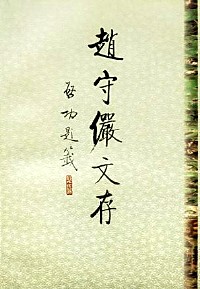 趙守儼文存
啓功題籤